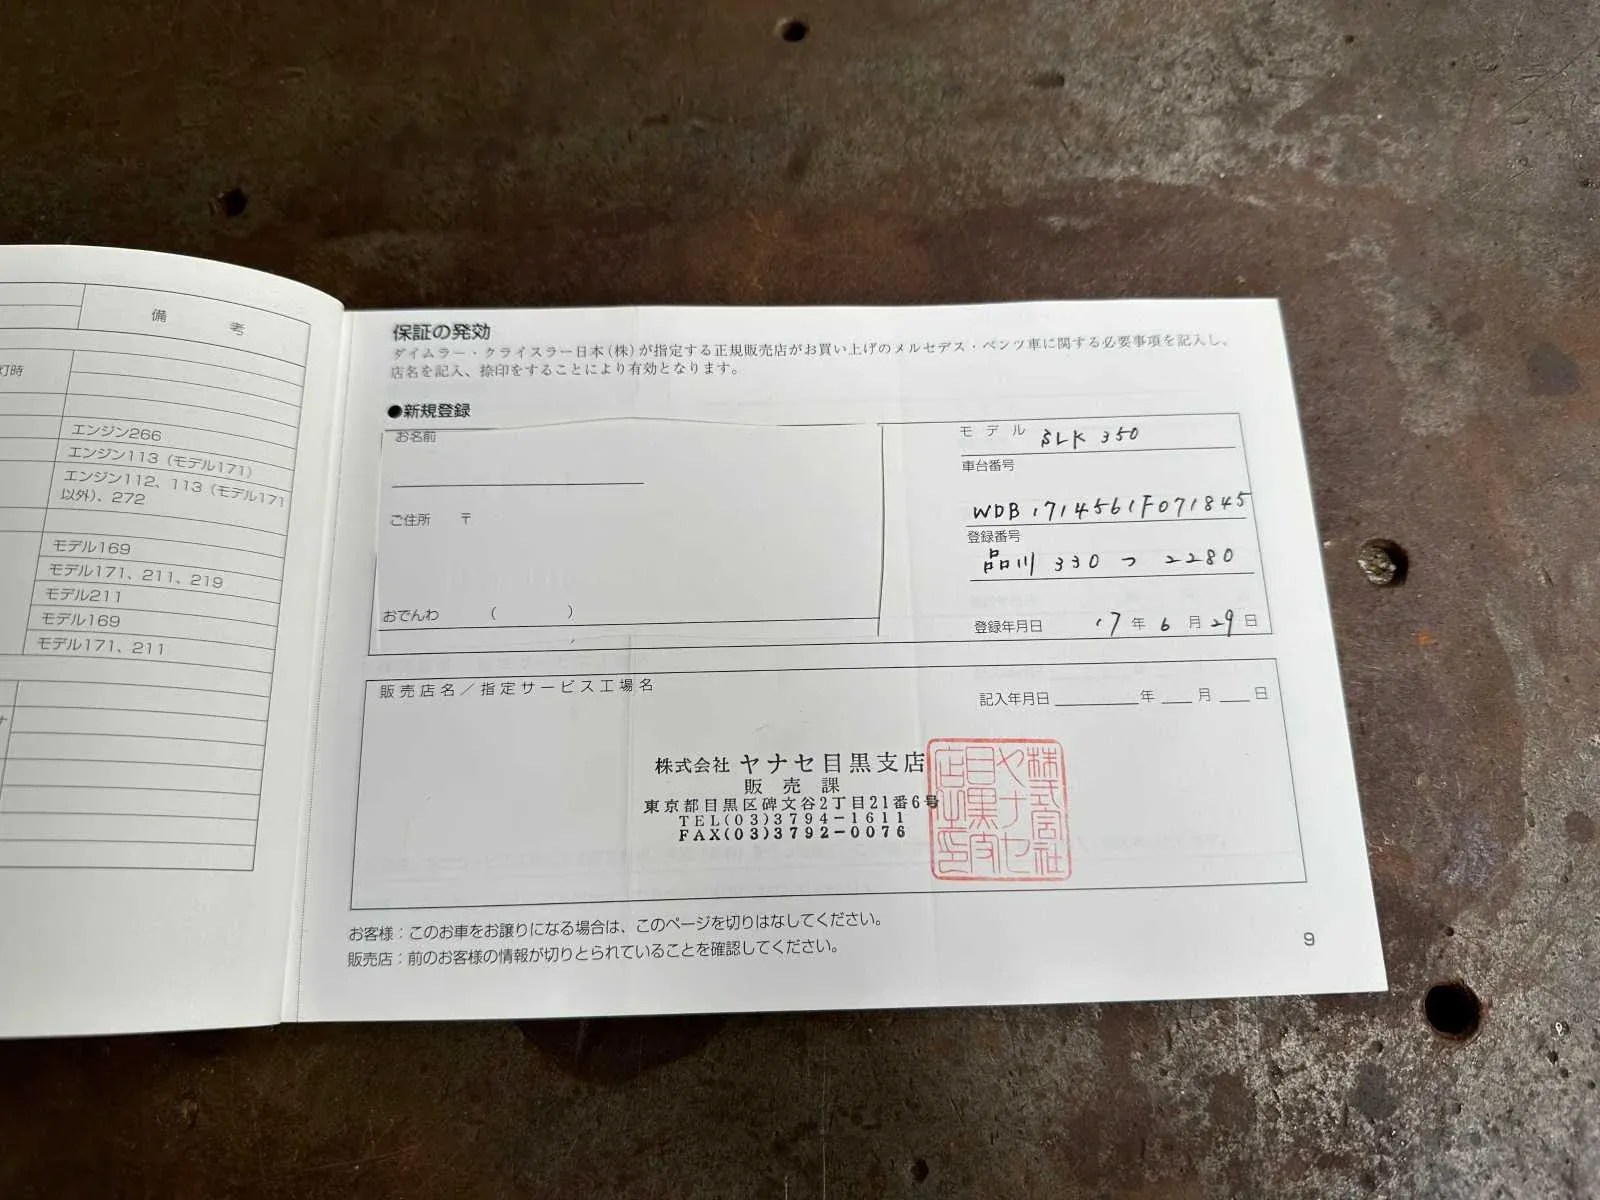 備 考
灯時
エンジン266
エンジン113（モデル171）
エンジン112、113（モデル171
以外）、272
モデル169
モデル171、211、219
モデル211
モデル169
モデル171、211
保証の発効
ダイムラー・クライスラー日本(株)が指定する正規販売店がお買い上げのメルセデス・ベンツ車に関する必要事項を記入し、
店名を記入、捺印をすることにより有効となります。
●新規登録
お名前
ご住所 〒
おでんわ （ ）
モデル SLK 350
車台番号
WDB 1714561F071845
登録番号
品川 330 つ 2280
登録年月日 '17 年 6 月 29 日
販売店名／指定サービス工場名
記入年月日 年 月 日
株式会社 ヤナセ目黒支店
販売課
東京都目黒区碑文谷2丁目21番6号
TEL(03)3794-1611
FAX(03)3792-0076
株式会社
ヤナセ
目黒支
店之印
お客様：このお車をお譲りになる場合は、このページを切りはなしてください。
販売店：前のお客様の情報が切りとられていることを確認してください。
9